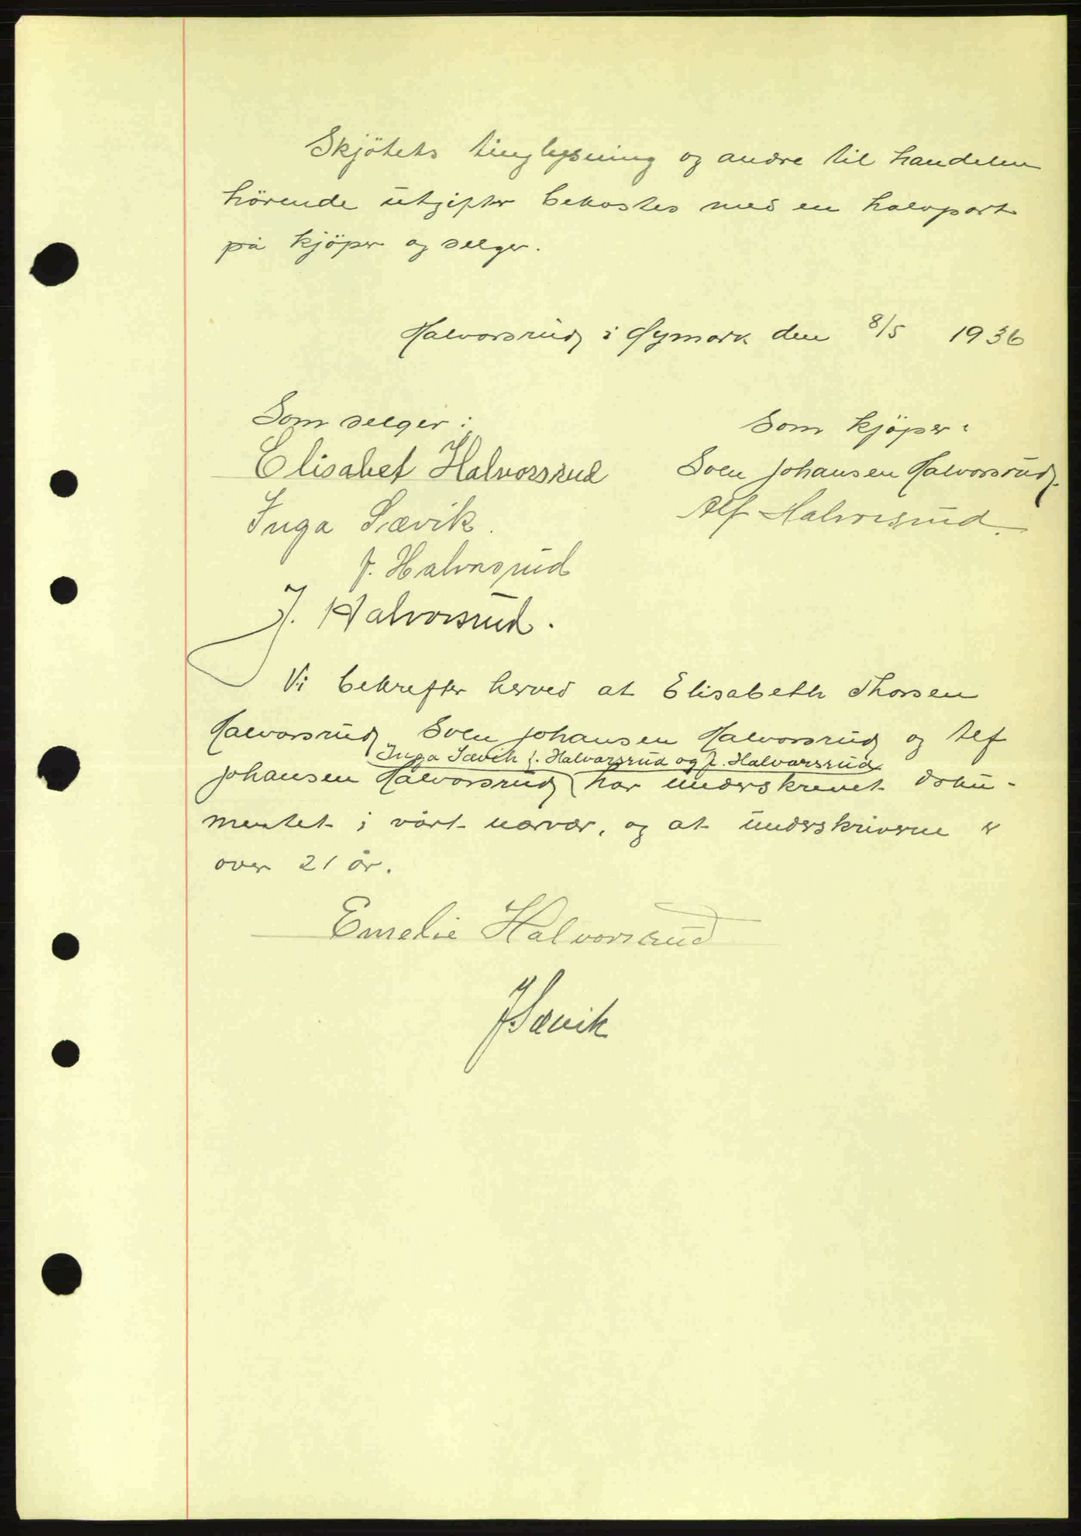 Skjötets tinglysning og andre til handelen
hörende utgifter bekostes med en halvpart
på kjöper og selger.
Halvorsrud i Øymark den 8/5 1936
Som selger:
Elisabet Halvorsrud
Inga Sævik.
J. Halvorsrud
J. Halvorsrud.
Som kjöper:
Sven Johansen Halvorsrud.
Alf Halvorsrud.
Vi bekrefter herved at Elisabeth Thorsen
Halvorsrud Sven Johansen Halvorsrud og Alf
Inga Sævik J. Halvorsrud og J. Halvarsrud
Johansen Halvorsrud har underskrevet doku-
mentet i vårt nærvær, og at underskriverne er
over 21 år.
Emelie Halvorsrud
J. Sævik